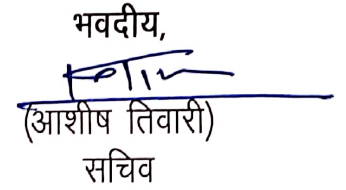 भवदीय,
(आशीष तिवारी)
सचिव